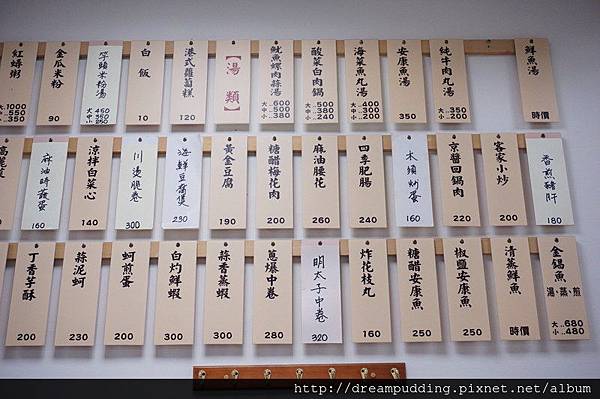 紅蟳粥
大1000
中550
小350
金瓜米粉
90
芋頭米粉湯
大
中
小
白飯
10
港式蘿蔔糕
120
【湯類】
魷魚螺肉蒜湯
大600
中500
小380
酸菜白肉鍋
大500
中380
小240
海菜魚丸湯
大400
中300
小200
安康魚湯
350
純牛肉丸湯
大350
小200
鮮魚湯
時價
高麗菜
麻油時蔬蛋
160
涼拌白菜心
140
川燙脆卷
300
海鮮豆腐煲
230
黃金豆腐
190
糖醋梅花肉
200
麻油腰花
260
四季肥腸
240
木須炒蛋
160
京醬回鍋肉
220
客家小炒
200
香煎豬肝
180
丁香芋酥
200
蒜泥蚵
230
蚵煎蛋
200
白灼鮮蝦
300
蒜香蒸蝦
300
蔥爆中卷
280
明太子中卷
320
炸花枝丸
160
糖醋安康魚
250
椒鹽安康魚
250
清蒸鮮魚
時價
金錩魚
湯、蒸、煎
大680
小480
http://dreampudding.pixnet.net/album